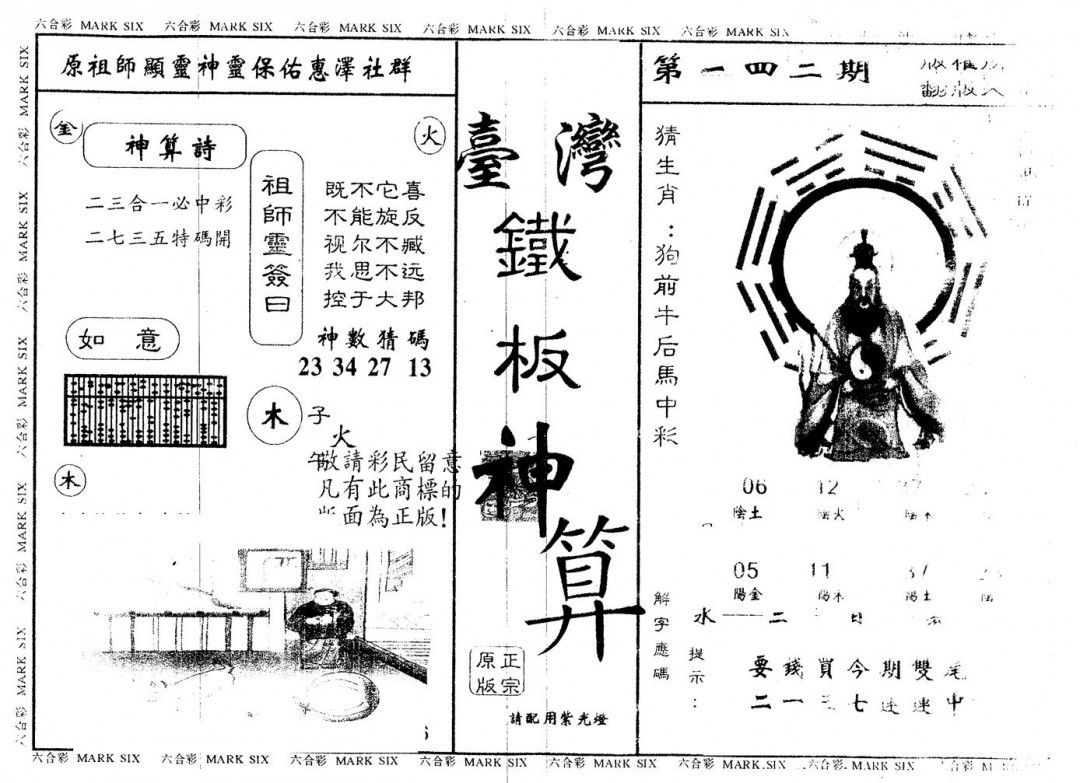 六合彩 MARK SIX 六合彩 MARK SIX 六合彩 MARK SIX 六合彩 MARK SIX 六合彩 MARK SIX 六合彩 MARK SIX
原祖師顯靈神靈保佑惠澤社群
金
神算詩
火
二三合一必中彩
二七三五特碼開
祖師靈簽曰
既不它喜
不能旋反
视尔不臧
我思不远
控于大邦
神數猜碼
23 34 27 13
如意
木
子
火
午
敬請彩民留意
凡有此商標的
版面為正版!
木
臺灣
鐵
板
神
算
正宗
原版
請配用紫光燈
第一四二期
版權
翻版
猜生肖:狗前牛后馬中彩
06 12
陰土 陰火
05 11 37
陽金 陽木 陽土
解字應碼
水一一二
提示:
要錢買今期雙尾
二一三七連連中
六合彩 MARK SIX 六合彩 MARK SIX 六合彩 MARK SIX 六合彩 MARK SIX 六合彩 MARK SIX 六合彩 MARK SIX 六合彩 MARK SIX
六合彩 MARK SIX 六合彩 MARK SIX 六合彩 MARK SIX 六合彩 MARK SIX 六合彩 MARK SIX